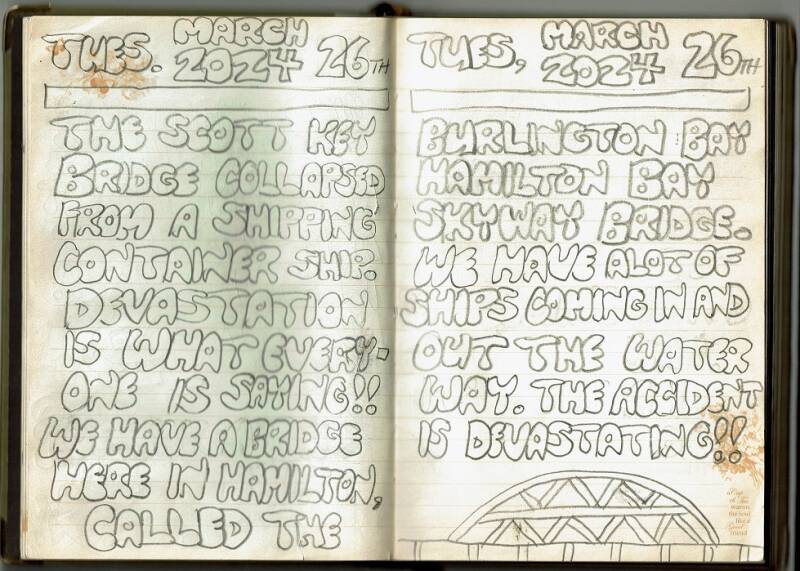 TUES. MARCH 2024 26TH
THE SCOTT KEY
BRIDGE COLLAPSED
FROM A SHIPPING
CONTAINER SHIP.
DEVASTATION
IS WHAT EVERY-
ONE IS SAYING!!
WE HAVE A BRIDGE
HERE IN HAMILTON,
CALLED THE
TUES, MARCH 2024 26TH
BURLINGTON BAY
HAMILTON BAY
SKYWAY BRIDGE.
WE HAVE ALOT OF
SHIPS COMING IN AND
OUT THE WATER
WAY. THE ACCIDENT
IS DEVASTATING!!